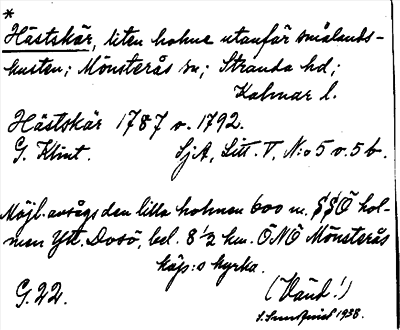 *
Hästskär, liten holme utanför smålands-
kusten; Mönsterås sn; Stranda hd;
Kalmar l.
Hästskär 1787 o. 1792.
G. Klint. SjA, Litt. V, N:o 5 o. 5 b.
Möjl. avsågs den lilla holmen 600 m. SSÖ hol-
men Ytt. Dosö, bel. 8 1/2 km. ÖNÖ Mönsterås
köp:s kyrka.
G. 22. (Vänd!)
1938.